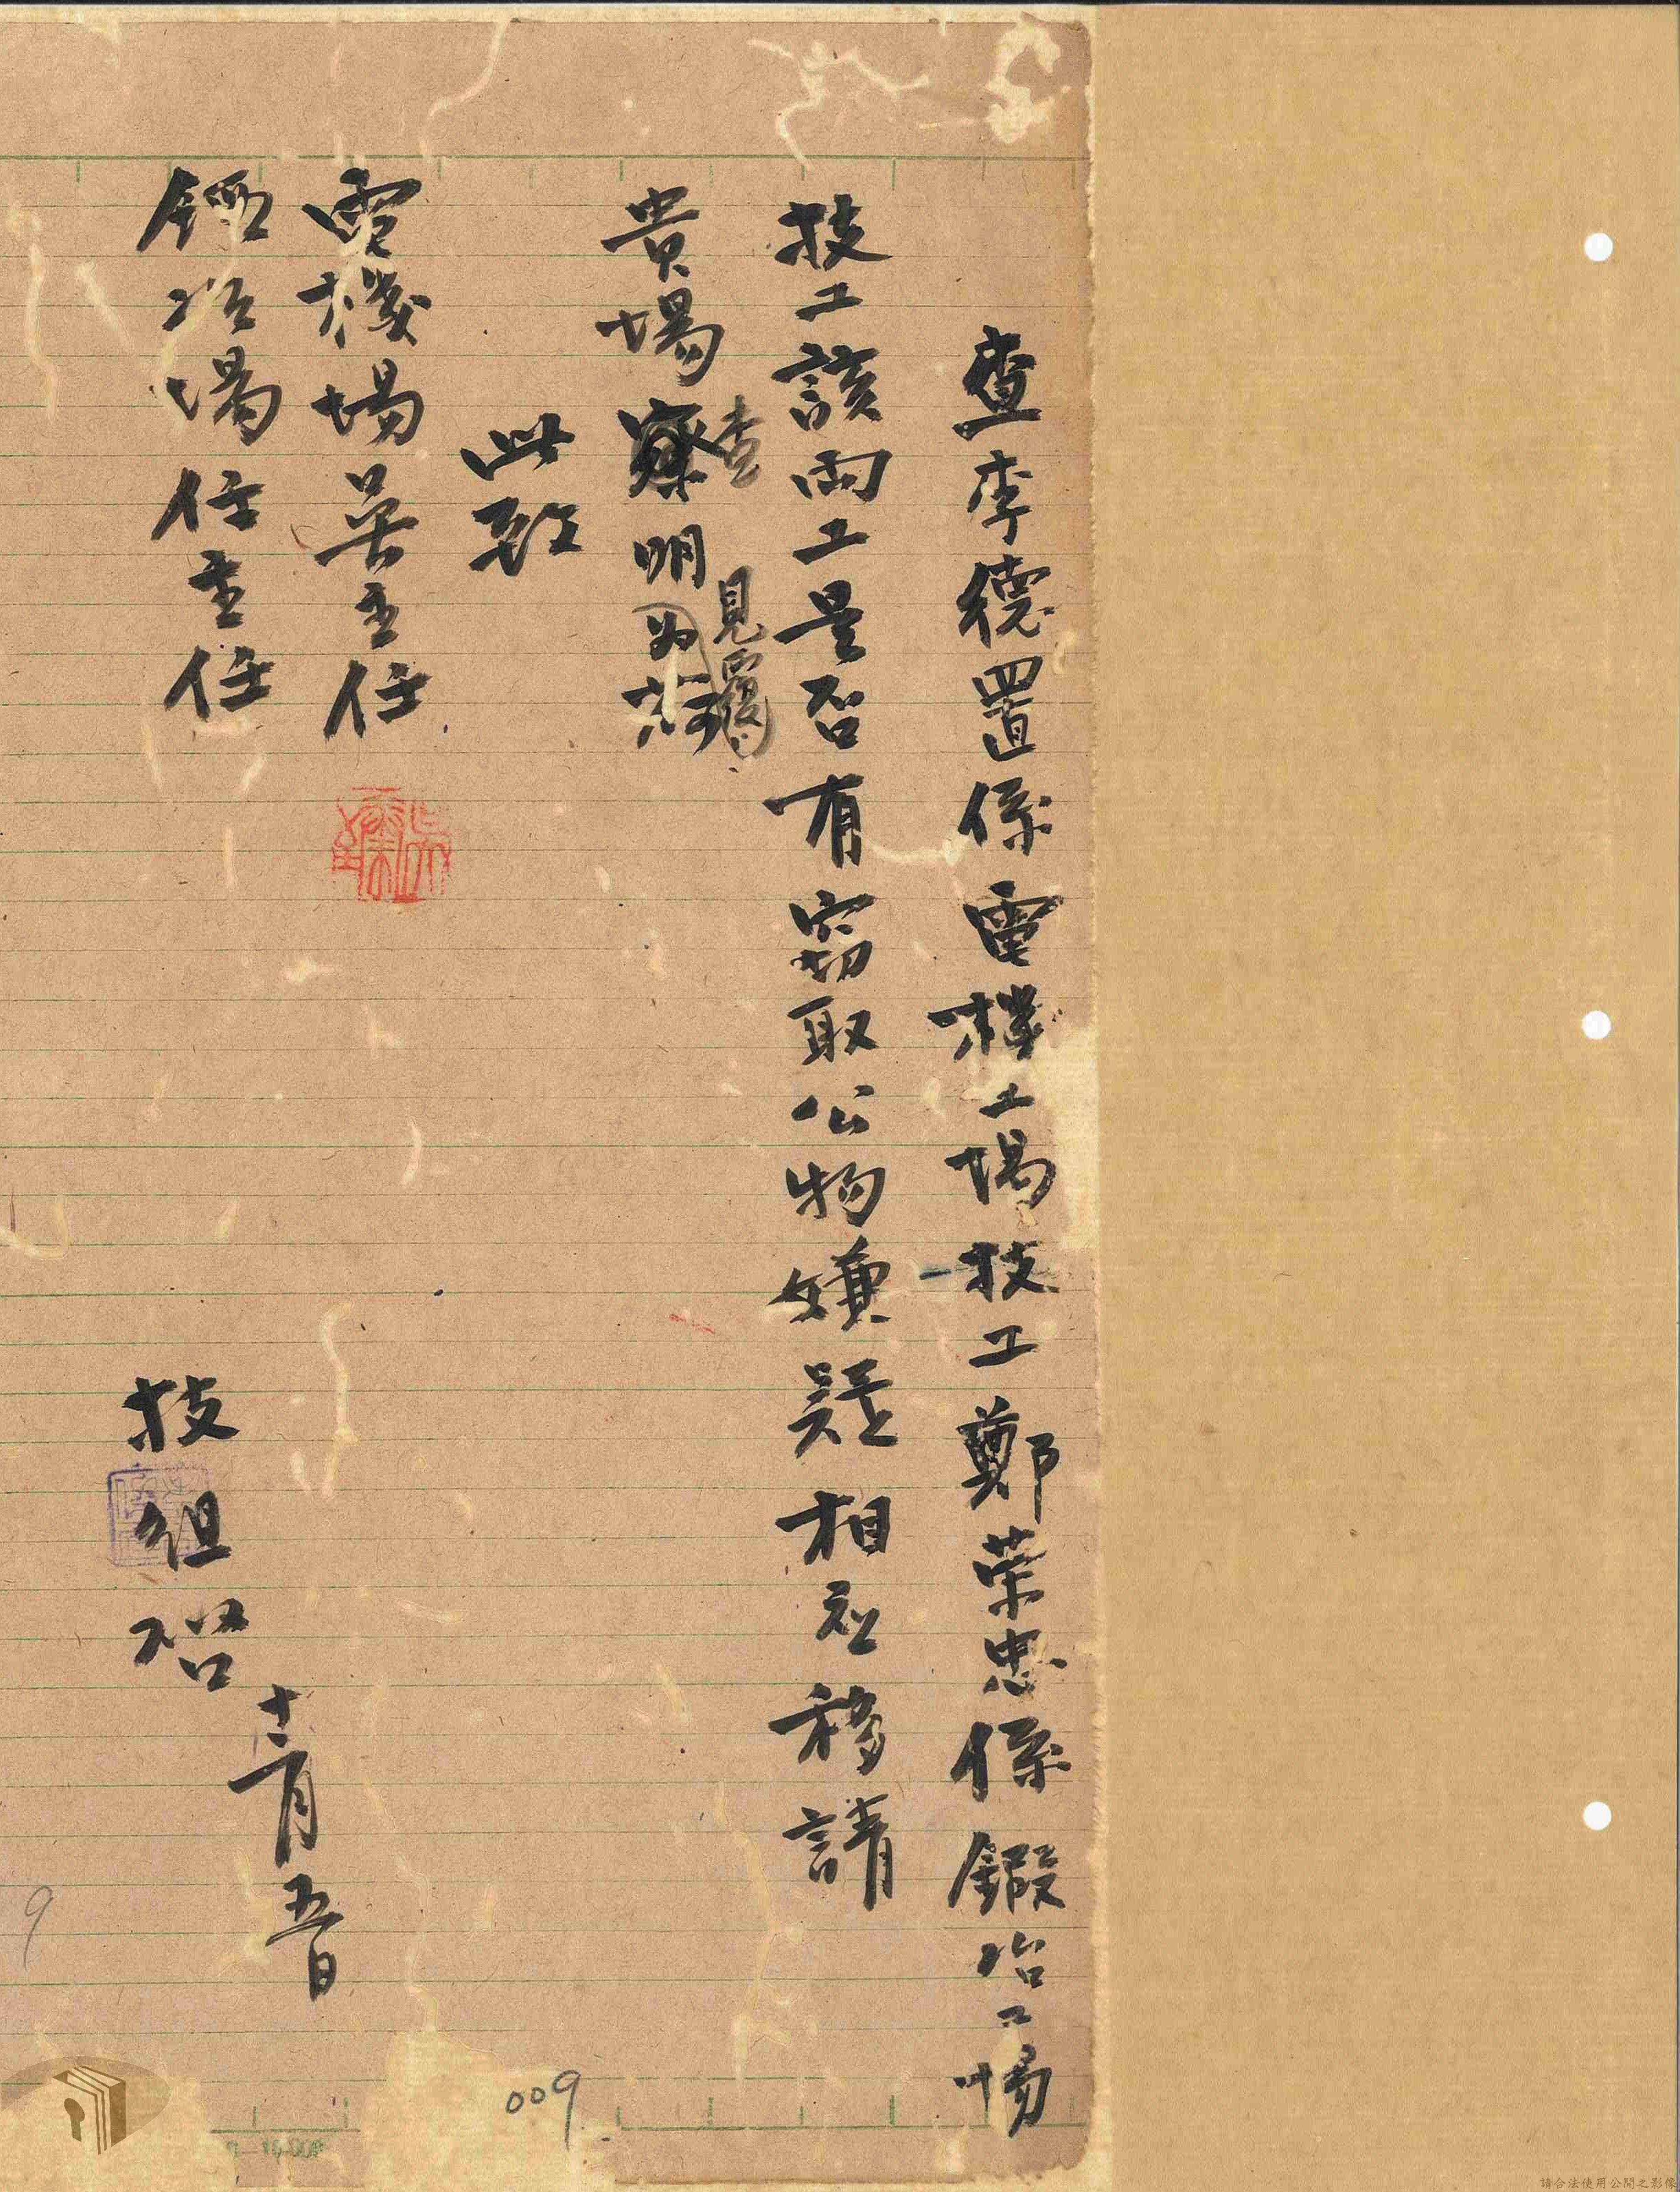 查李德置係電機工場技工鄭榮忠係鍛冶工場
技工該兩工是否有窃取公物嫌疑相應移請
貴場察明為荷
查
見覆
此致
電機場吴主任
鍛冶場任主任
技組啓
十二月五日
009
9
請合法使用公開之影像